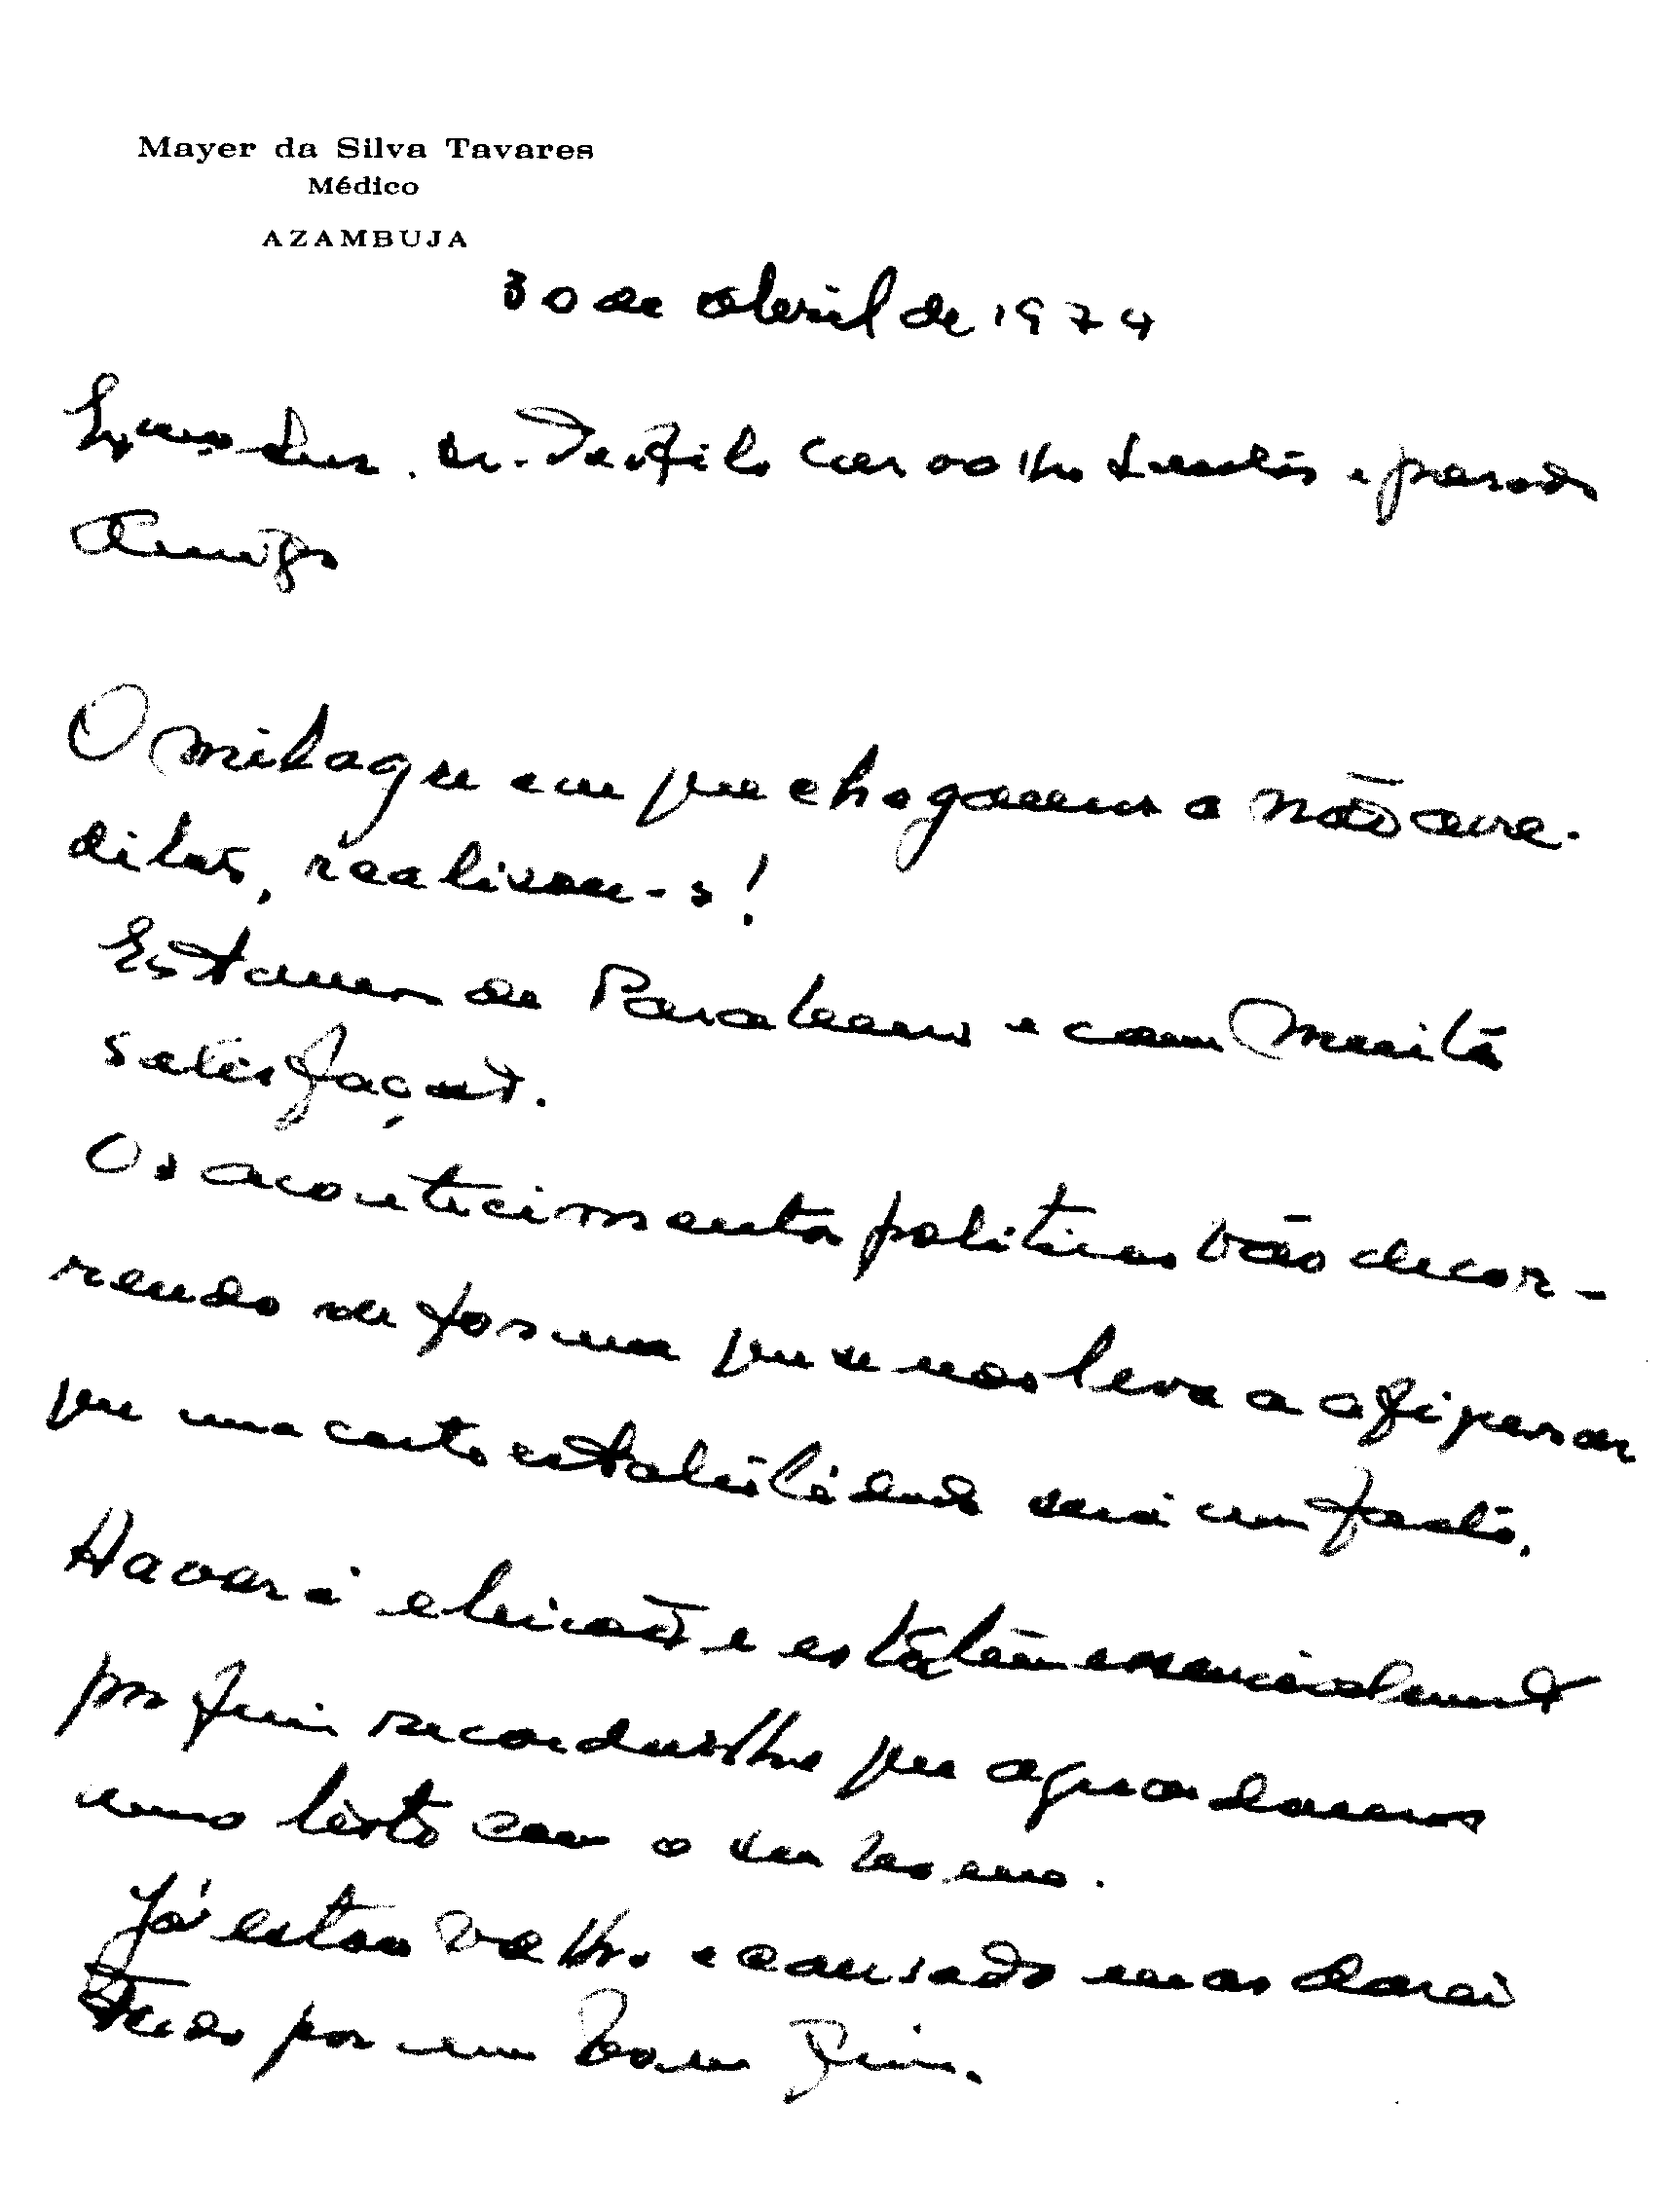 Mayer da Silva Tavares
Médico
AZAMBUJA
30 de abril de 1974
Exmo Snr. Dr. Teófilo Carvalho Santos e prezado
Amigo
O milagre em que chegámos a não acre-
ditar, realizou-se!
Estamos de Parabens e com Muita
satisfação.
Os acontecimentos politicos vão decor-
rendo de forma que nos leva a afi pensar
que uma certa estabilidade será um facto.
Haverá eleição e esta tem essencialmente
por fim recordar-lhe que aguardamos
uma lista com o seu nome.
Já estou velho e cansado mas darei
Tudo por um Bom Fim.